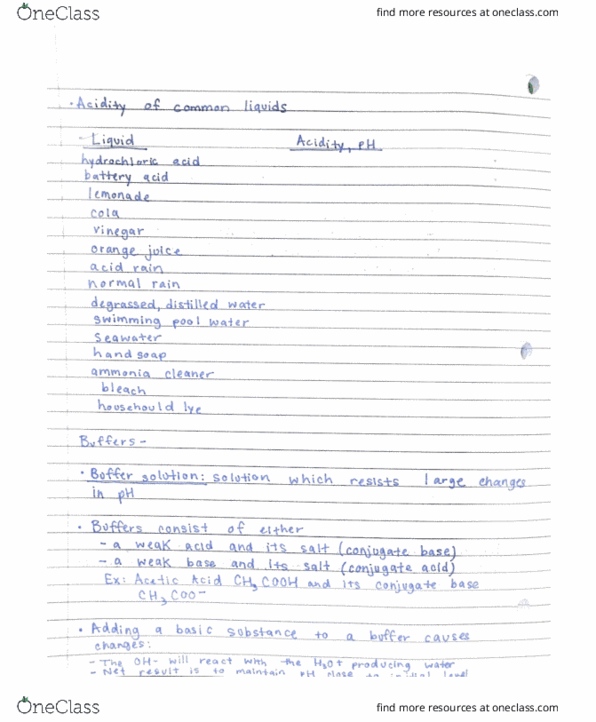 OneClass find more resources at oneclass.com
• Acidity of common liquids
- Liquid Acidity, pH
hydrochloric acid
battery acid
lemonade
cola
vinegar
orange juice
acid rain
normal rain
degrassed, distilled water
swimming pool water
seawater
hand soap
ammonia cleaner
bleach
househould lye
Buffers -
• Buffer solution: solution which resists large changes
in pH
• Buffers consist of either
- a weak acid and its salt (conjugate base)
- a weak base and its salt (conjugate acid)
Ex: Acetic Acid CH3COOH and its conjugate base
CH3COO-
• Adding a basic substance to a buffer causes
changes:
- The OH- will react with the H3O+ producing water
- Net result is to maintain pH close to initial level
OneClass find more resources at oneclass.com